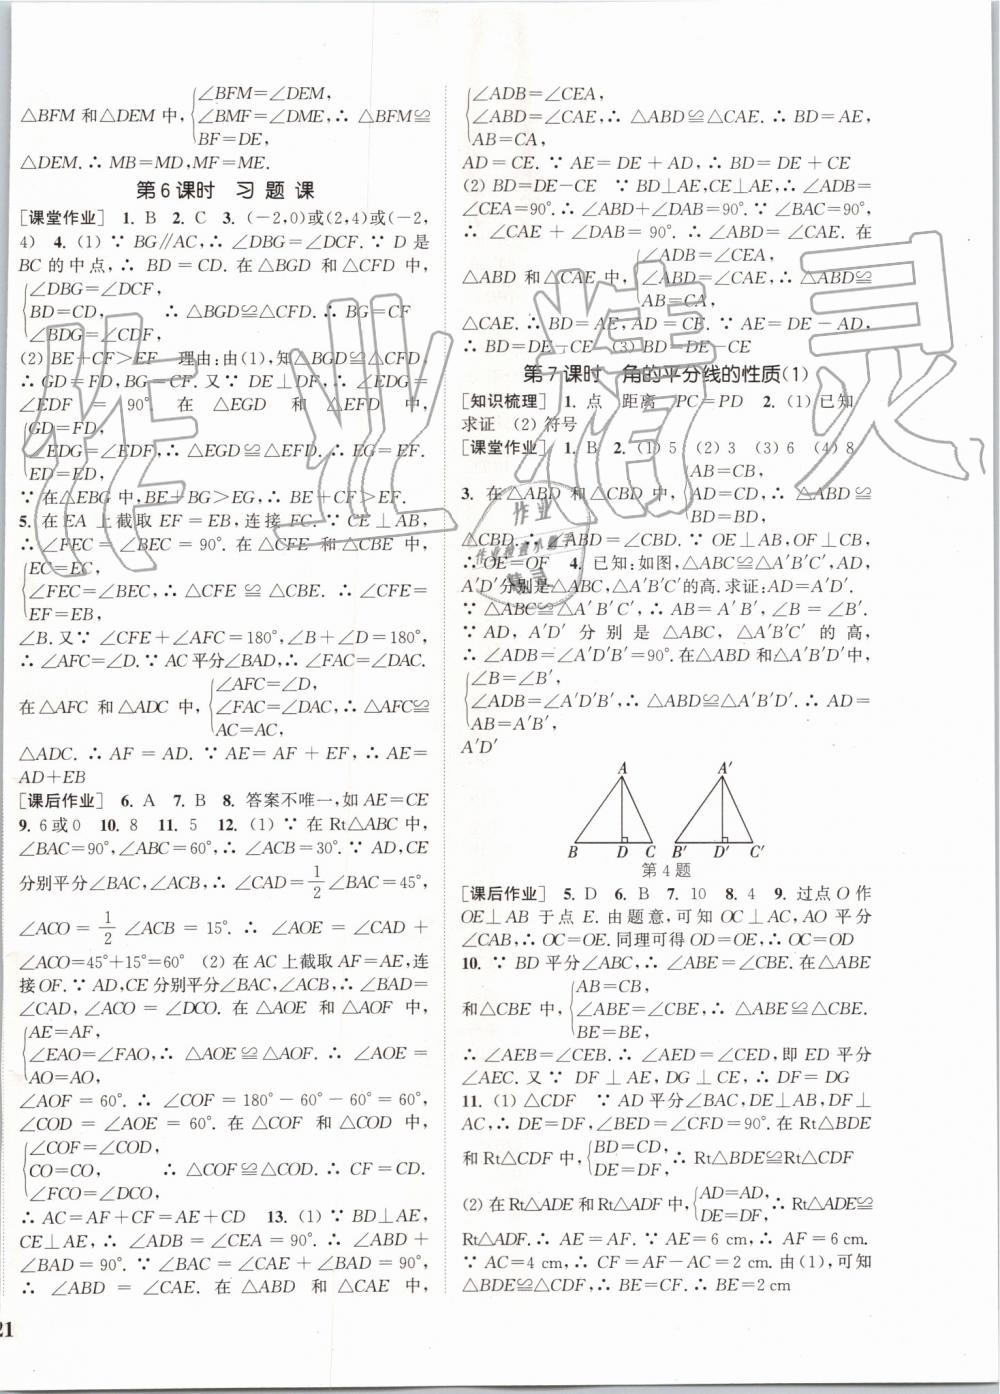 ∠BFM=∠DEM,
△BFM 和△DEM 中, ∠BMF=∠DME, ∴ △BFM≌
BF=DE,
△DEM. ∴ MB=MD, MF=ME.
第6课时 习 题 课
[课堂作业] 1. B 2. C 3. (-2,0)或(2,4)或(-2,
4) 4. (1) ∵ BG∥AC, ∴ ∠DBG=∠DCF. ∵ D 是
BC 的中点, ∴ BD=CD. 在△BGD 和△CFD 中,
∠DBG=∠DCF,
BD=CD, ∴ △BGD≌△CFD. ∴ BG=CF
∠BDG=∠CDF,
(2) BE+CF>EF 理由:由(1),知△BGD≌△CFD,
∴ GD=FD, BG=CF. 又∵ DE⊥DF, ∴ ∠EDG=
∠EDF=90°. 在△EGD 和△EFD 中,
GD=FD,
∠EDG=∠EDF, ∴ △EGD≌△EFD. ∴ EG=EF.
ED=ED,
∵ 在△EBG 中, BE+BG>EG, ∴ BE+CF>EF.
5. 在 EA 上截取 EF=EB, 连接 FC. ∵ CE⊥AB,
∴ ∠FEC=∠BEC=90°. 在△CFE 和△CBE 中,
EC=EC,
∠FEC=∠BEC, ∴ △CFE≌△CBE. ∴ ∠CFE=
EF=EB,
∠B. 又∵ ∠CFE+∠AFC=180°, ∠B+∠D=180°,
∴ ∠AFC=∠D. ∵ AC 平分∠BAD, ∴ ∠FAC=∠DAC.
∠AFC=∠D,
在△AFC 和△ADC 中, ∠FAC=∠DAC, ∴ △AFC≌
AC=AC,
△ADC. ∴ AF=AD. ∵ AE=AF+EF, ∴ AE=
AD+EB
[课后作业] 6. A 7. B 8. 答案不唯一,如 AE=CE
9. 6或0 10. 8 11. 5 12. (1) ∵ 在 Rt△ABC 中,
∠BAC=90°, ∠ABC=60°, ∴ ∠ACB=30°. ∵ AD, CE
分别平分∠BAC, ∠ACB, ∴ ∠CAD=1/2∠BAC=45°,
∠ACO=1/2∠ACB=15°. ∴ ∠AOE=∠CAD+
∠ACO=45°+15°=60° (2) 在 AC 上截取 AF=AE, 连
接 OF. ∵ AD, CE 分别平分∠BAC, ∠ACB, ∴ ∠BAD=
∠CAD, ∠ACO=∠DCO. 在△AOE 和△AOF 中,
AE=AF,
∠EAO=∠FAO, ∴ △AOE≌△AOF. ∴ ∠AOE=
AO=AO,
∠AOF=60°. ∴ ∠COF=180°-60°-60°=60°,
∠COD=∠AOE=60°. 在△COF 和△COD 中,
∠COF=∠COD,
CO=CO, ∴ △COF≌△COD. ∴ CF=CD.
∠FCO=∠DCO,
∴ AC=AF+CF=AE+CD 13. (1) ∵ BD⊥AE,
CE⊥AE, ∴ ∠ADB=∠CEA=90°. ∴ ∠ABD+
∠BAD=90°. ∵ ∠BAC=∠CAE+∠BAD=90°,
∴ ∠ABD=∠CAE. 在△ABD 和△CAE 中,
21
∠ADB=∠CEA,
∠ABD=∠CAE, ∴ △ABD≌△CAE. ∴ BD=AE,
AB=CA,
AD=CE. ∵ AE=DE+AD, ∴ BD=DE+CE
(2) BD=DE-CE ∵ BD⊥AE, CE⊥AE, ∴ ∠ADB=
∠CEA=90°. ∴ ∠ABD+∠DAB=90°. ∵ ∠BAC=90°,
∴ ∠CAE+∠DAB=90°. ∴ ∠ABD=∠CAE. 在
∠ADB=∠CEA,
△ABD 和△CAE 中, ∠ABD=∠CAE, ∴ △ABD≌
AB=CA,
△CAE. ∴ BD=AE, AD=CE. ∵ DE=AD+AE,
∴ BD=DE-CE (3) BD=DE-CE
第7课时 角的平分线的性质(1)
[知识梳理] 1. 点 距离 PC=PD 2. (1) 已知
求证 (2) 符号
[课堂作业] 1. B 2. (1) 5 (2) 3 (3) 6 (4) 8
AB=CB,
3. 在△ABD 和△CBD 中, AD=CD, ∴ △ABD≌
BD=BD,
△CBD. ∴ ∠ABD=∠CBD. ∵ OE⊥AB, OF⊥CB,
∴ OE=OF 4. 已知:如图, △ABC≌△A′B′C′, AD,
A′D′分别是△ABC, △A′B′C′的高. 求证: AD=A′D′.
∵ △ABC≌△A′B′C′, ∴ AB=A′B′, ∠B=∠B′.
∵ AD, A′D′ 分别是△ABC, △A′B′C′ 的高,
∴ ∠ADB=∠A′D′B′=90°. 在△ABD 和△A′B′D′中,
∠B=∠B′,
∠ADB=∠A′D′B′, ∴ △ABD≌△A′B′D′. ∴ AD=
AB=A′B′,
A′D′
A A′
B D C B′ D′ C′
第4题
[课后作业] 5. D 6. B 7. 10 8. 4 9. 过点 O 作
OE⊥AB 于点 E. 由题意,可知 OC⊥AC, AO 平分
∠CAB, ∴ OC=OE. 同理可得 OD=OE, ∴ OC=OD
10. ∵ BD 平分∠ABC, ∴ ∠ABE=∠CBE. 在△ABE
AB=CB,
和△CBE 中, ∠ABE=∠CBE, ∴ △ABE≌△CBE.
BE=BE,
∴ ∠AEB=∠CEB. ∴ ∠AED=∠CED, 即 ED 平分
∠AEC. 又∵ DF⊥AE, DG⊥CE, ∴ DF=DG
11. (1) △CDF ∵ AD 平分∠BAC, DE⊥AB, DF⊥
AC, ∴ DE=DF, ∠BED=∠CFD=90°. 在 Rt△BDE
和 Rt△CDF 中, BD=CD, ∴ Rt△BDE≌Rt△CDF
DE=DF,
(2) 在 Rt△ADE 和 Rt△ADF 中, AD=AD, ∴ Rt△ADE≌
DE=DF,
Rt△ADF. ∴ AE=AF. ∵ AE=6 cm, ∴ AF=6 cm.
∵ AC=4 cm, ∴ CF=AF-AC=2 cm. 由(1), 可知
△BDE≌△CDF, ∴ BE=CF. ∴ BE=2 cm
作业精灵
作业
精灵